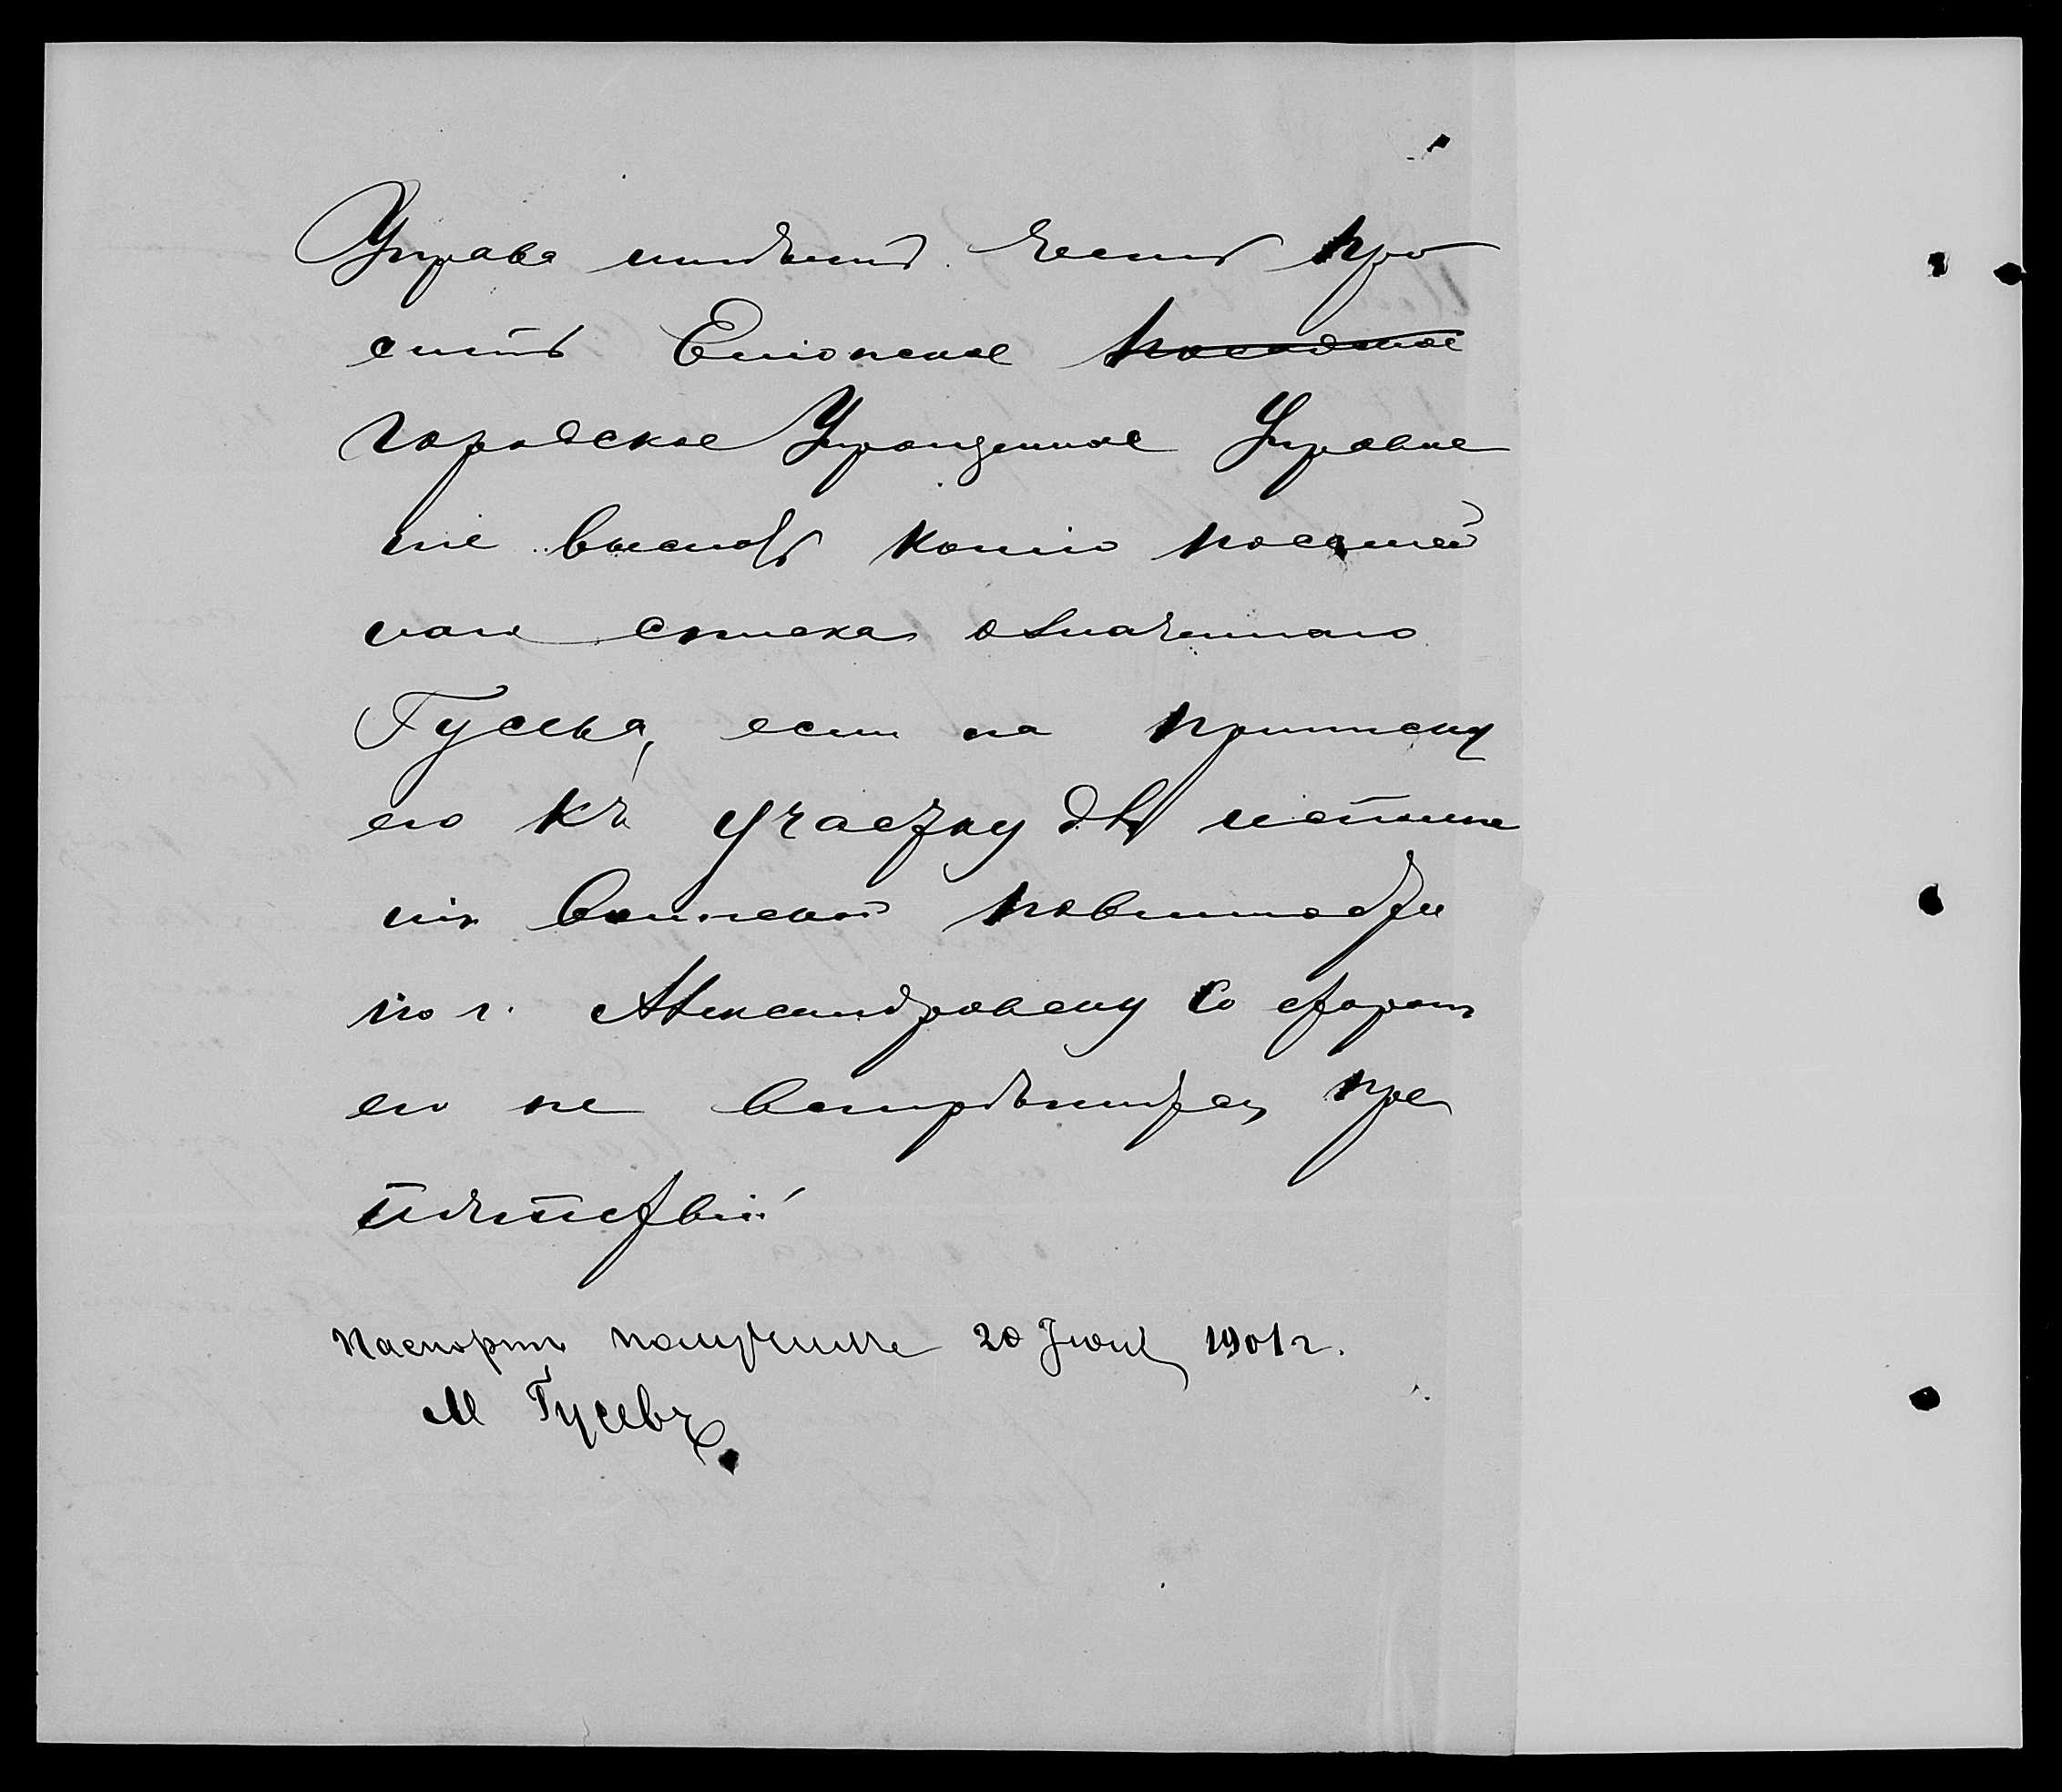 Управа имѣетъ честь про
сить Ейское посадское
городское Упрощенное Управле
ніе выслать копію посемей
наго списка означеннаго
Гусева, если на приписку
его къ участку для исполне
нія воинской повинности
по г. Александровску со стороны
его не встрѣтится пре
пятствій
Паспортъ получилъ 20 Іюня 1901 г.
М Гусевъ